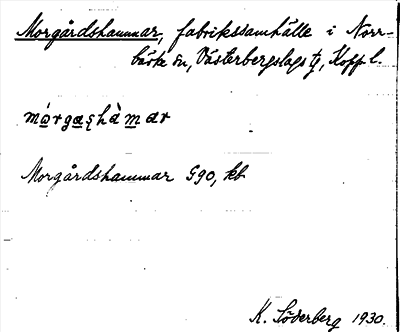 Morgårdshammar, fabrikssamhälle i Norr-
bärke sn, Västerbergslags tg, Kopp l.
Morgårdshammar G90, kb
K. Söderberg 1930.